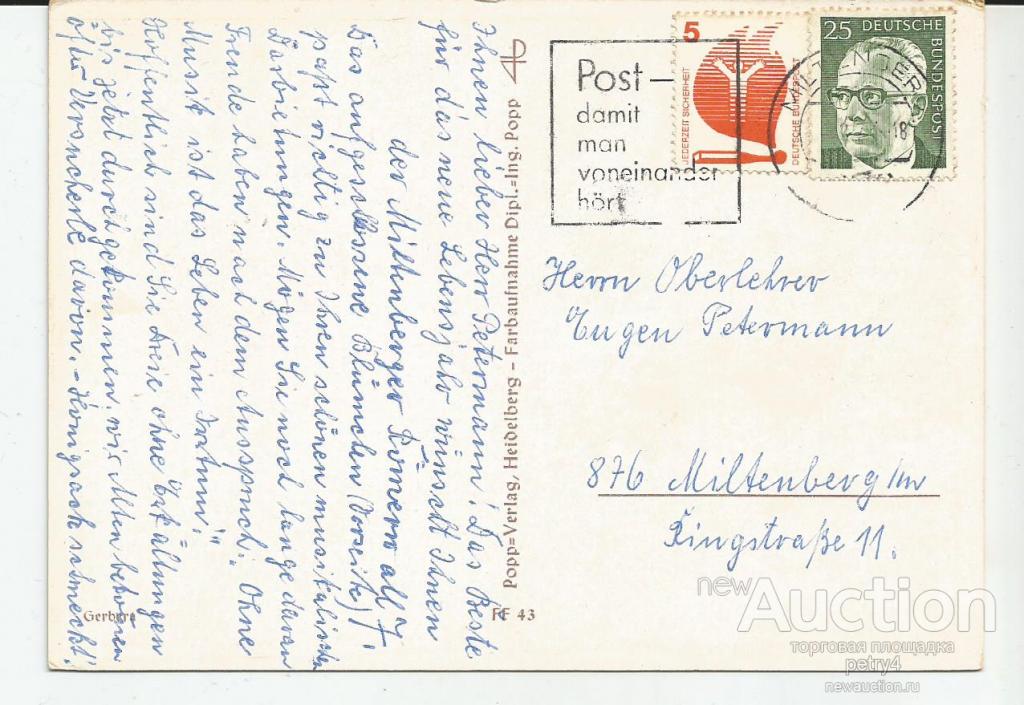 Ihnen lieber Herr Petermann! Das Beste
für das neue Lebensjahr wünscht Ihnen
der Miltenberger
Das aufgeschlossene Blümchen (Vorseite)
paßt richtig zu Ihren schönen musikalischen
Darbietungen. Mögen Sie noch lange daran
Freude haben nach dem Ausspruch: „Ohne
Musik ist das Leben ein Irrtum".
Hoffentlich sind Sie heuer ohne Erkältungen
bis jetzt durchgekommen. wir Alten
öfter
Popp=Verlag, Heidelberg – Farbaufnahme Dipl.=Ing. Popp
Gerbera
FF 43
Post –
damit
man
voneinander
hört
5
JEDERZEIT SICHERHEIT
DEUTSCHE BUNDESPOST
25 DEUTSCHE BUNDESPOST
18
Herrn Oberlehrer
Eugen Petermann
876 Miltenberg/M
Ringstraße 11.
newAuction
торговая площадка
petry4
newauction.ru